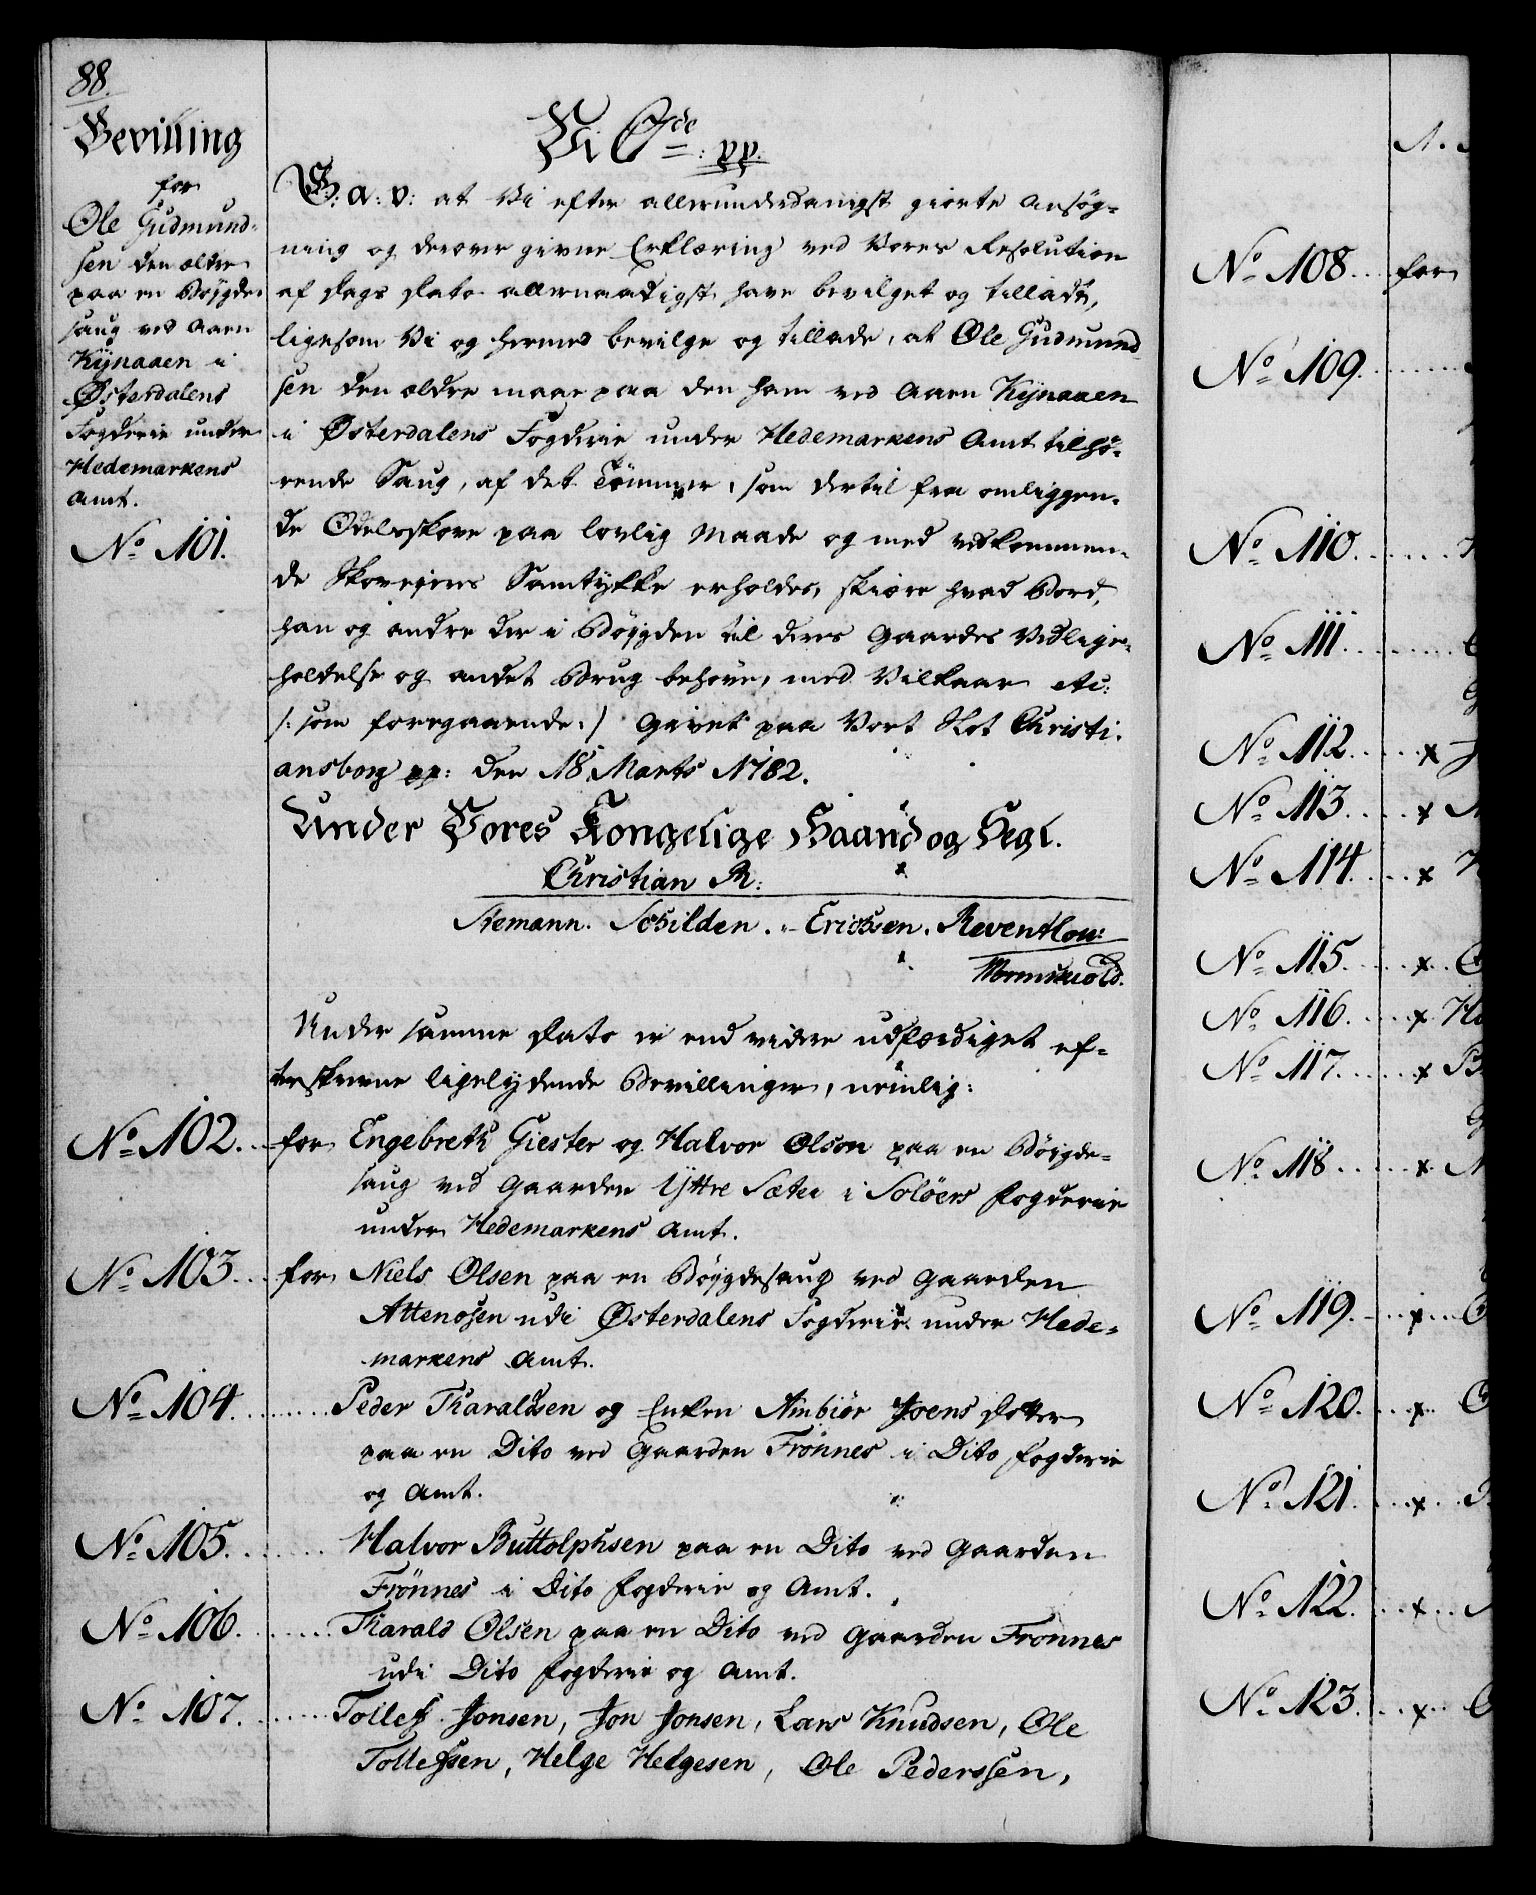 88.
Bevilling
for
Ole Gudmund-
sen den ældre
paa en Bøygde-
saug ved Aaen
Kynaaen i
Østerdalens
Fogderie under
Hedemarkens
Amt.
No 101.
Vi C 7de pp.
G: a: v: at Vi efter allerunderdanigst giorte Ansøg-
ning og derover givne Erklæring ved Vores Resolution
af Dags Dato allernaadigst have bevilget og tilladt,
ligesom Vi og hermed bevilge og tillade, at Ole Gudmund
sen den ældre maae paa den ham ved Aaen Kynaaen
i Østerdalens Fogderie under Hedemarkens Amt tilhø-
rende Saug, af det Tømmer, som dertil fra omliggen-
de Odelsskove paa lovlig Maade og med vedkommen-
de Skovejers Samtykke erholdes, skiære hvad Bord,
han og andre der i Bøygden til deres Gaardes Vedlige-
holdelse og andet Brug behøve, med Vilkaar etc:
/: som foregaaende :/ Givet paa Vort Slot Christi-
ansborg pp: den 18 Marts 1782.
Under Vores Kongelige Haand og Segl.
Christian R:
Stemann. Schilden. - Erichsen. Reventlow:
Wormskiold.
Under samme Dato er end videre udfærdiget ef-
terskrevne ligelydende Bevillinger, nemlig:
No 102. . for Engebreth Giester og Halvor Olson paa en Bøigde-
saug ved Gaarden Yttre Sæter i Soløers Fogderie
under Hedemarkens Amt.
No 103. . . for Niels Olsen paa en Bøygdesaug ved Gaarden
Attenosen udi Østerdalens Fogderie under Hede-
markens Amt.
No 104. . . . . . . . Peder Tharaldsen og Enken Ambiør Joens Dotter
paa en Dito ved Gaarden Frønnes i Dito Fogderie
og Amt.
No 105. . . . . . . Halvor Buttolphsen paa en Dito ved Gaarden
Frønnes i Dito Fogderie og Amt.
No 106. . . . . . . . Tharald Olsen paa en Dito ved Gaarden Frønnes
udi Dito Fogderie og Amt.
No 107. . . . . . . . Tollef Jonsen, Jon Jonsen, Lars Knudsen, Ole
Tollefssen, Helge Helgesen, Ole Pederssen,
No 108. . . for
No 109. . . . . . . .
No 110. . . . . . .
No 111. . . . . . . .
No 112. . . . . x
No 113. . . . . x
No 114. . . . . x
No 115. . . . . x
No 116. . . . . x
No 117. . . . . . x
No 118. . . . . . x
No 119. . . . x
No 120. . . . x
No 121. . . . x
No 122. . . . x
No 123. . . . x